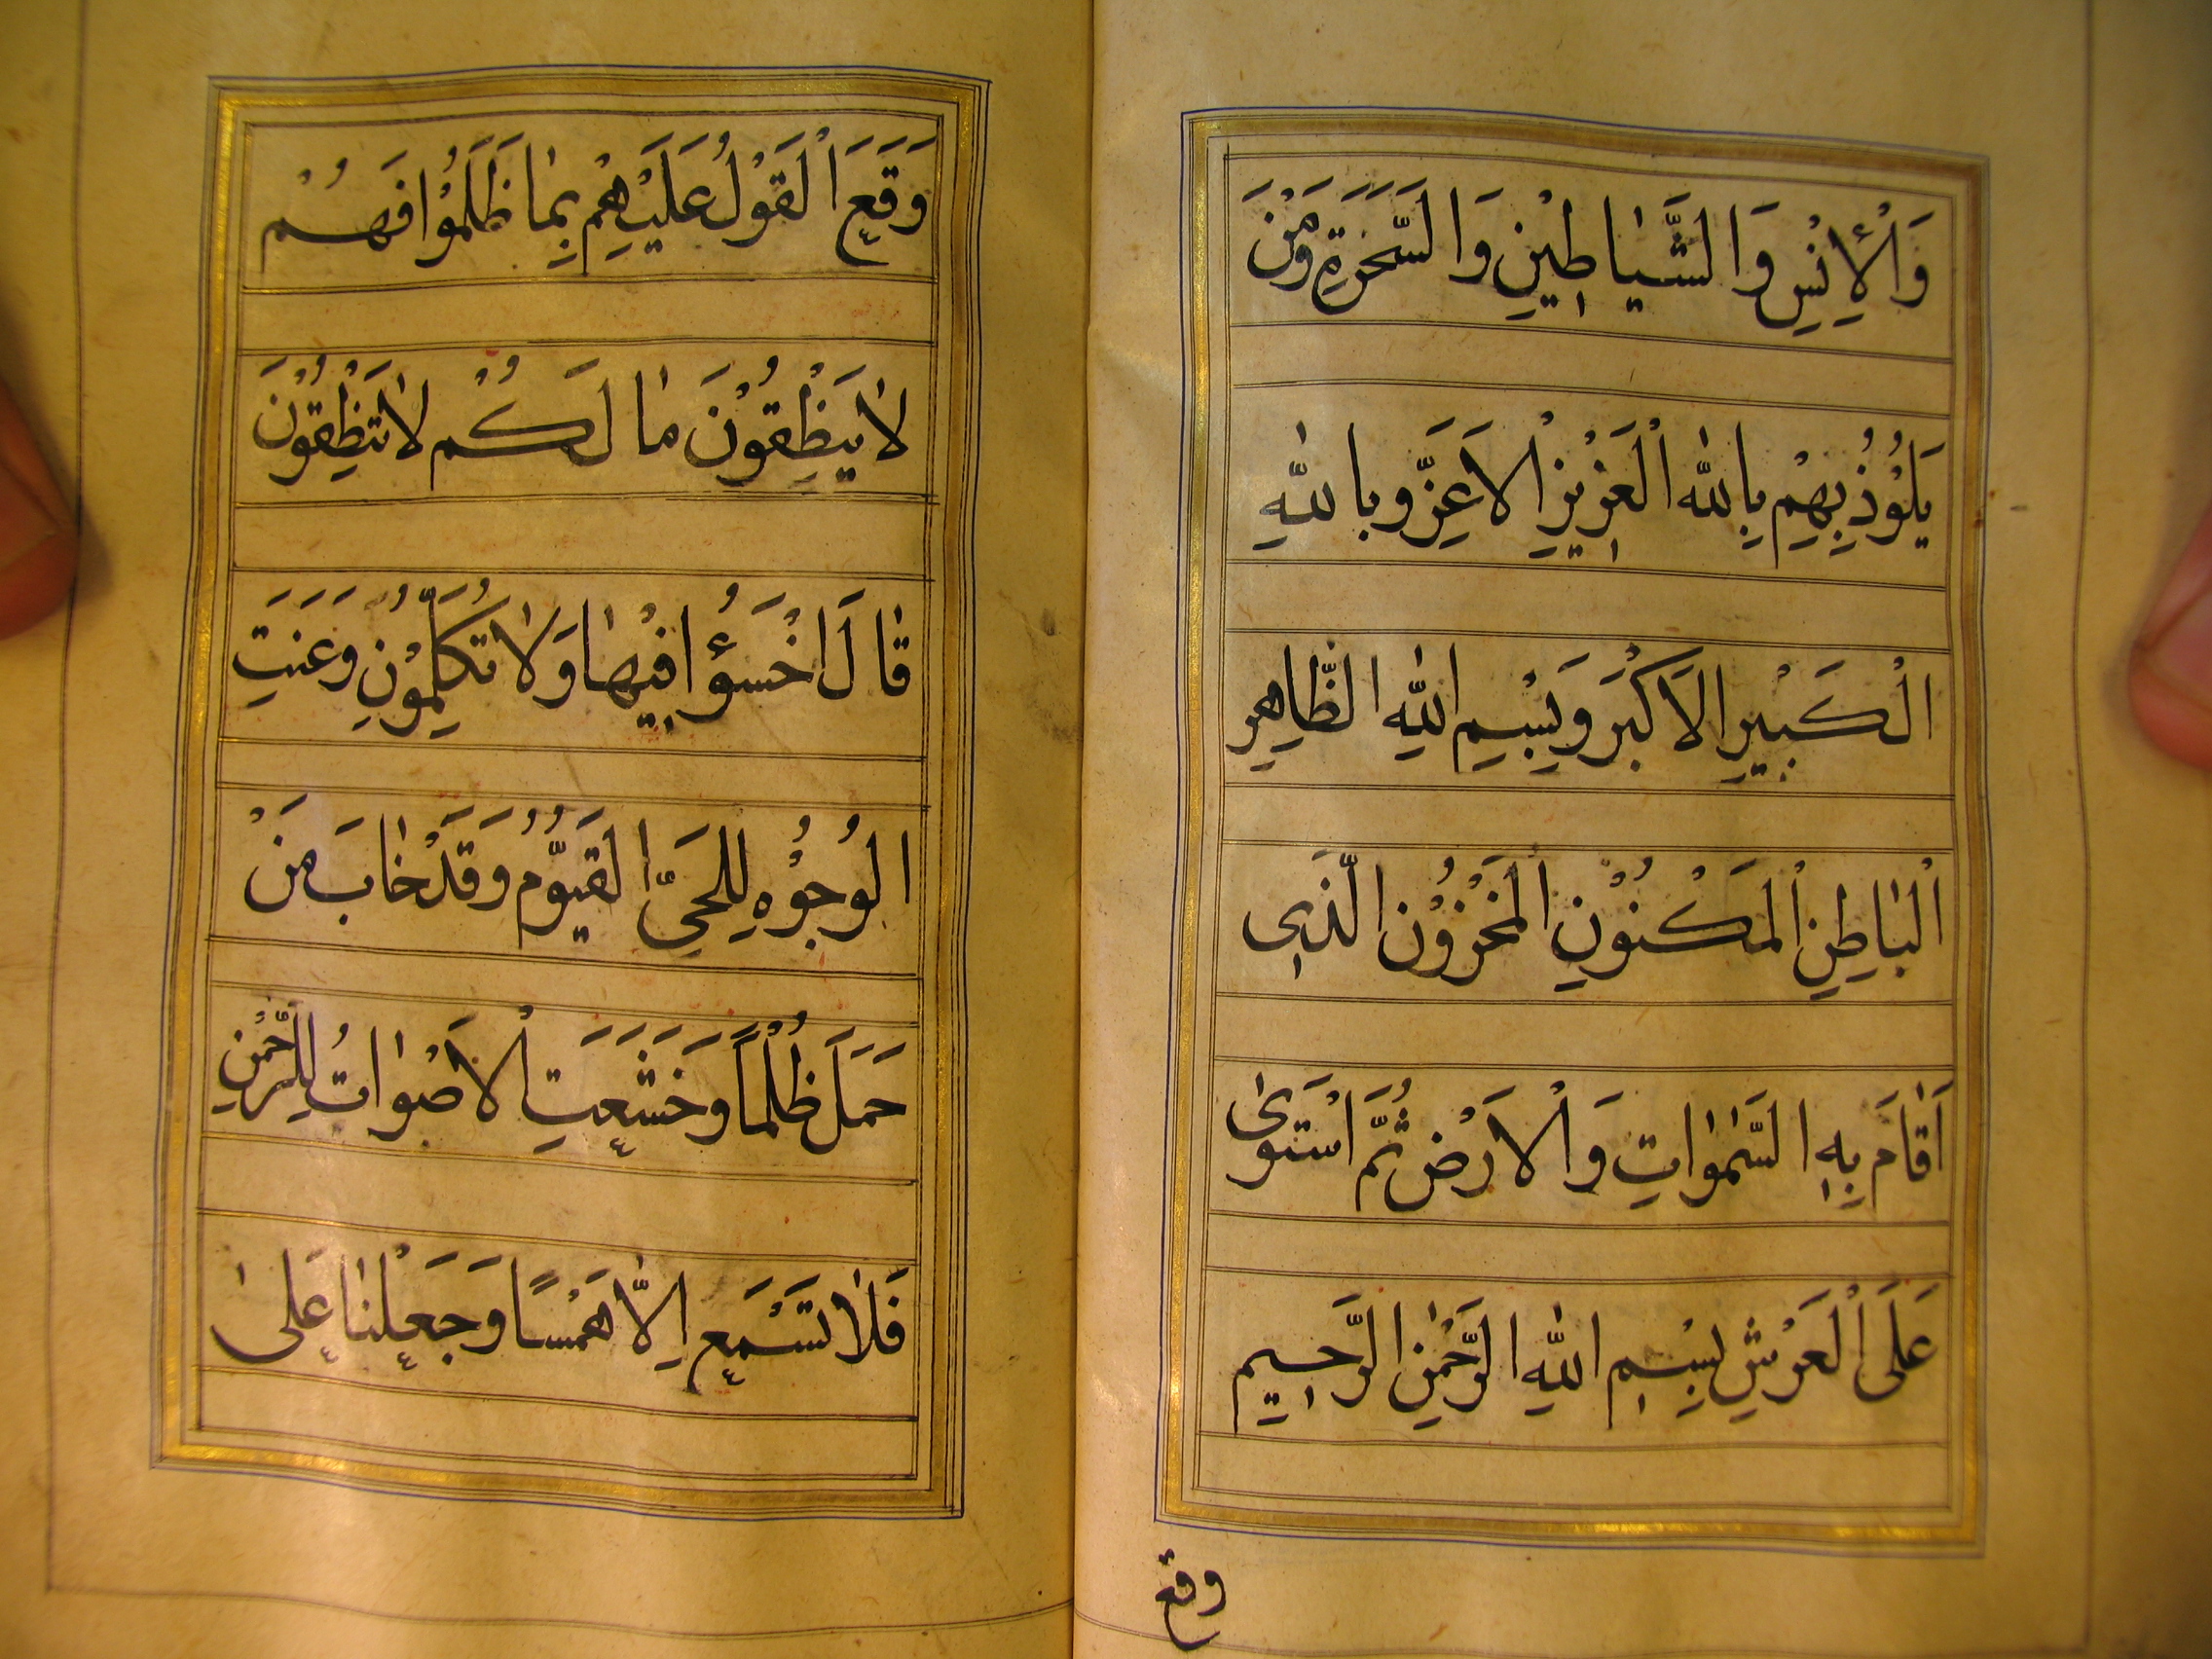 وَالْإِنْسِ وَالشَّيَاطِيْنِ وَالسَّحَرَةِ وَمَنْ
يَلُوْذُ بِهِمْ بِاللّٰهِ الْعَزِيْزِ الْاَعِزِّ وبِاللّٰهِ
الْكَبْيرِ الْاَكْبَرِ وَبِسْمِ اللّٰهِ الظَّاهِرِ
الْبٰاطِنِ الْمَكْنُوْنِ الْمَخْزُوْنِ الَّذٖى
اَقٰامَ بِهِ السَّمٰوٰاتِ وَالْاَرْضَ ثُمَّ اسْتَوىٰ
عَلَى الْعَرْشِ بِسْمِ اللّٰهِ الرَّحْمٰنِ الرَّحٖيمِ
وقع
وَقَعَ الْقَوْلُ عَلَيْهِمْ بِمٰا ظَلَمُوْا فَهُمْ
لٰا يَنْظِقُوْنَ مٰا لَكُمْ لٰا تَنْظِقُوْنَ
قٰالَ اخْسَؤُا فِيْهٰا وَلٰا تُكَلِّمُوْنِ وَعَنَتِ
الْوُجُوْهُ لِلْحَيِّ الْقَيُّوْمِ وَقَدْ خٰابَ مَنْ
حَمَلَ ظُلْمًا وَخَشَعَتِ الْاَصْوٰاتُ لِلرَّحْمٰنِ
فَلٰا تَسْمَعُ اِلّٰا هَمْسًا وَجَعَلْنٰا عَلىٰ